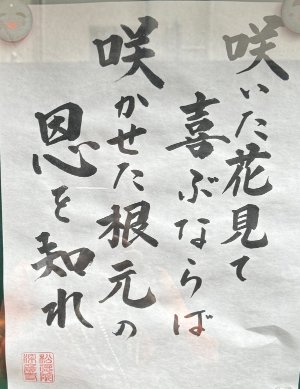 咲いた花見て
喜ぶならば
咲かせた根元の
恩を知れ